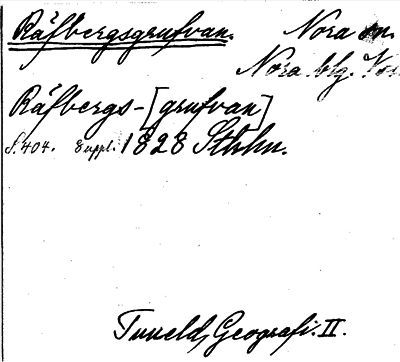 Räfbergsgrufvan. Nora sn.
Nora blg.
Räfbergs-[grufvan]
S. 404. Suppl. 1828 Sthlm.
Tuneld, Geografi. II.